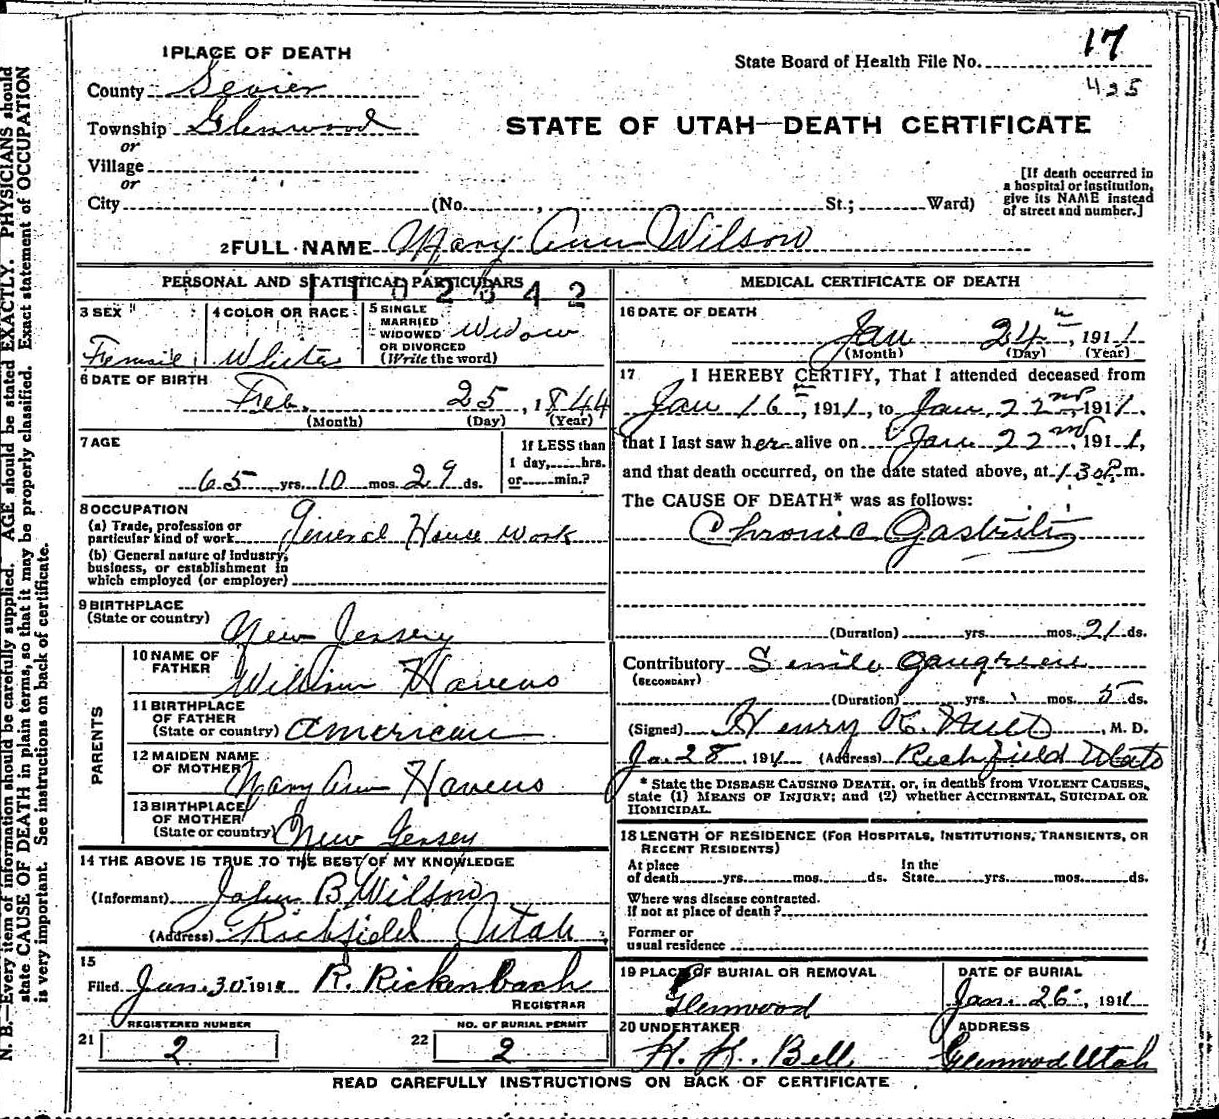 1 PLACE OF DEATH
State Board of Health File No. 17
425
County Sevier
Township Glenwood
STATE OF UTAH—DEATH CERTIFICATE
or
Village
or
City (No. , St.; Ward)
[If death occurred in
a hospital or institution,
give its NAME instead
of street and number.]
2 FULL NAME Mary Ann Wilson
PERSONAL AND STATISTICAL PARTICULARS
3 SEX Female
4 COLOR OR RACE White
5 SINGLE
MARRIED
WIDOWED
OR DIVORCED
(Write the word)
Widow
6 DATE OF BIRTH
Feb. 25, 1844
(Month) (Day) (Year)
7 AGE
65 yrs. 10 mos. 29 ds.
If LESS than
1 day, hrs.
or min.?
8 OCCUPATION
(a) Trade, profession or
particular kind of work General House work
(b) General nature of industry,
business, or establishment in
which employed (or employer)
9 BIRTHPLACE
(State or country) New Jersey
PARENTS
10 NAME OF
FATHER William Havens
11 BIRTHPLACE
OF FATHER
(State or country) American
12 MAIDEN NAME
OF MOTHER Mary Ann Havens
13 BIRTHPLACE
OF MOTHER
(State or country) New Jersey
14 THE ABOVE IS TRUE TO THE BEST OF MY KNOWLEDGE
(Informant) John B Wilson
(Address) Richfield Utah
15
Filed Jan. 30 1911 R. Rickenbach
REGISTRAR
REGISTERED NUMBER
21 2
NO. OF BURIAL PERMIT
22 2
MEDICAL CERTIFICATE OF DEATH
16 DATE OF DEATH
Jan 24th, 1911
(Month) (Day) (Year)
17 I HEREBY CERTIFY, That I attended deceased from
Jan 16th, 1911, to Jan, 22nd 1911,
that I last saw her alive on Jan 22nd, 1911,
and that death occurred, on the date stated above, at 1:30 P.m.
The CAUSE OF DEATH* was as follows:
Chronic Gastritis
(Duration) yrs. mos. 21 ds.
Contributory Senile Gangrene
(SECONDARY)
(Duration) yrs. mos. 5 ds.
(Signed) Henry K. , M. D.
Ja. 28, 1911 (Address) Richfield Utah
* State the DISEASE CAUSING DEATH, or, in deaths from VIOLENT CAUSES,
state (1) MEANS OF INJURY; and (2) whether ACCIDENTAL, SUICIDAL OR
HOMICIDAL.
18 LENGTH OF RESIDENCE (FOR HOSPITALS, INSTITUTIONS, TRANSIENTS, OR
RECENT RESIDENTS)
At place
of death yrs. mos. ds.
In the
State yrs. mos. ds.
Where was disease contracted.
if not at place of death?
Former or
usual residence
19 PLACE OF BURIAL OR REMOVAL
Glenwood
DATE OF BURIAL
Jan. 26, 1911
20 UNDERTAKER
H. H. Bell
ADDRESS
Glenwood Utah
READ CAREFULLY INSTRUCTIONS ON BACK OF CERTIFICATE
N. B.—Every item of information should be carefully supplied. AGE should be stated EXACTLY. PHYSICIANS should
state CAUSE OF DEATH in plain terms, so that it may be properly classified. Exact statement of OCCUPATION
is very important. See instructions on back of certificate.